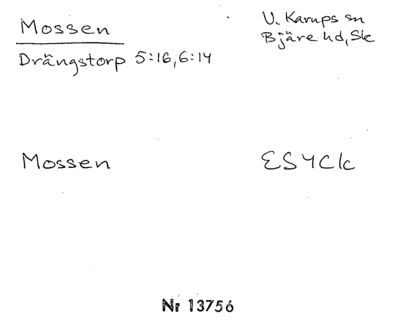 Mossen
V. Karups sn
Bjäre hd, Sk
Drängstorp 5:16, 6:14
Mossen
Nr 13756